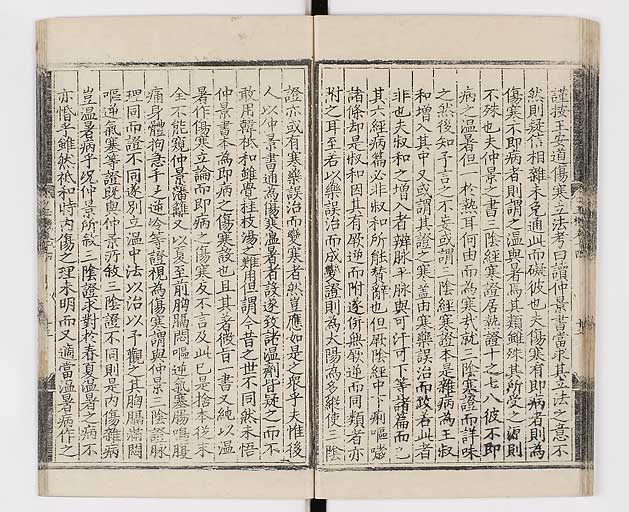 謹按王安道傷寒立法考曰讀仲景書當求其立法之意不
然則疑信相雜未免通此而礙彼也夫傷寒有即病者則為
傷寒不即病者則謂之溫與暑為其類雖殊其所受之源則
不殊也夫仲景之書三陰經寒證居熱證十之七八彼不即
病之溫暑但一於熱耳何由而為寒哉就三陰寒證而詳味
之然後知予言之不妄或謂三陰經寒證本是雜病為王叔
和增入其中又或謂其證之寒盖由寒藥誤治而致若此者
非也夫叔和之增入者辨脉平脉與可汗可下等諸篇而已
其六經病篇必非叔和所能贊辭也但厥陰經中下痢嘔噦
諸條却是叔和因其有厥逆而附遂併無厥逆而同類者亦
附之耳至若以藥誤治而成變證則為太陽為多縱使三陰
證亦或有寒藥誤治而變寒者然豈應如是之衆乎夫惟後
人以仲景書通為傷寒溫暑者設遂致諸溫劑皆疑之而不
敢用韓祗和雖覺桂枝湯之難用但謂今昔之世不同然未悟
仲景書本為即病之傷寒設也且其著微旨一書又純以溫
暑作傷寒立論而即病之傷寒反不言及此已是捨本從末
全不能窺仲景藩籬又以夏至前胸膈悶嘔逆氣塞腸鳴腹
痛身體拘急手足逆冷等證視為傷寒謂與仲景三陰證脉
理同而證不同遂別立溫中法以治以予觀之其胸膈滿悶
嘔逆氣塞等證既與仲景所敘三陰證不同則是內傷雜病
豈溫暑病乎况仲景所敘三陰證求對於春夏溫暑之病不
亦惛乎雖然祗和時內傷之理未明而又適當溫暑病作之